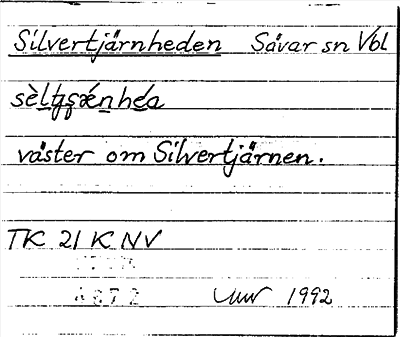 Silvertjärnheden Sävar sn Vbl
väster om Silvertjärnen.
TK 21 K NV
1992